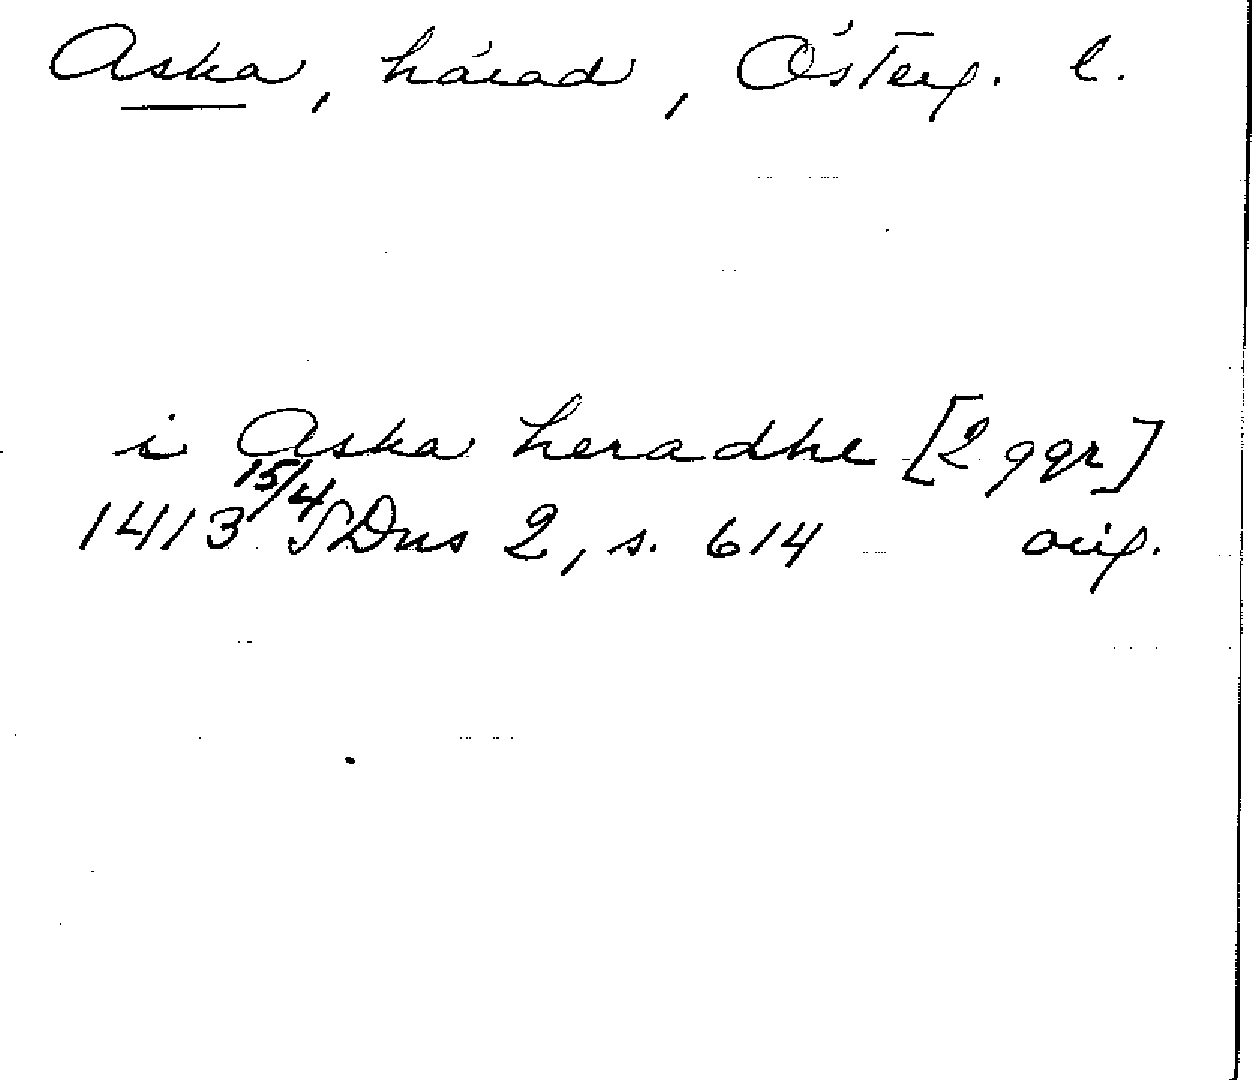 Aska, härad, Österg. l.
i Aska heradhe [2 ggr]
1413 15/4 SDns 2, s. 614 orig.